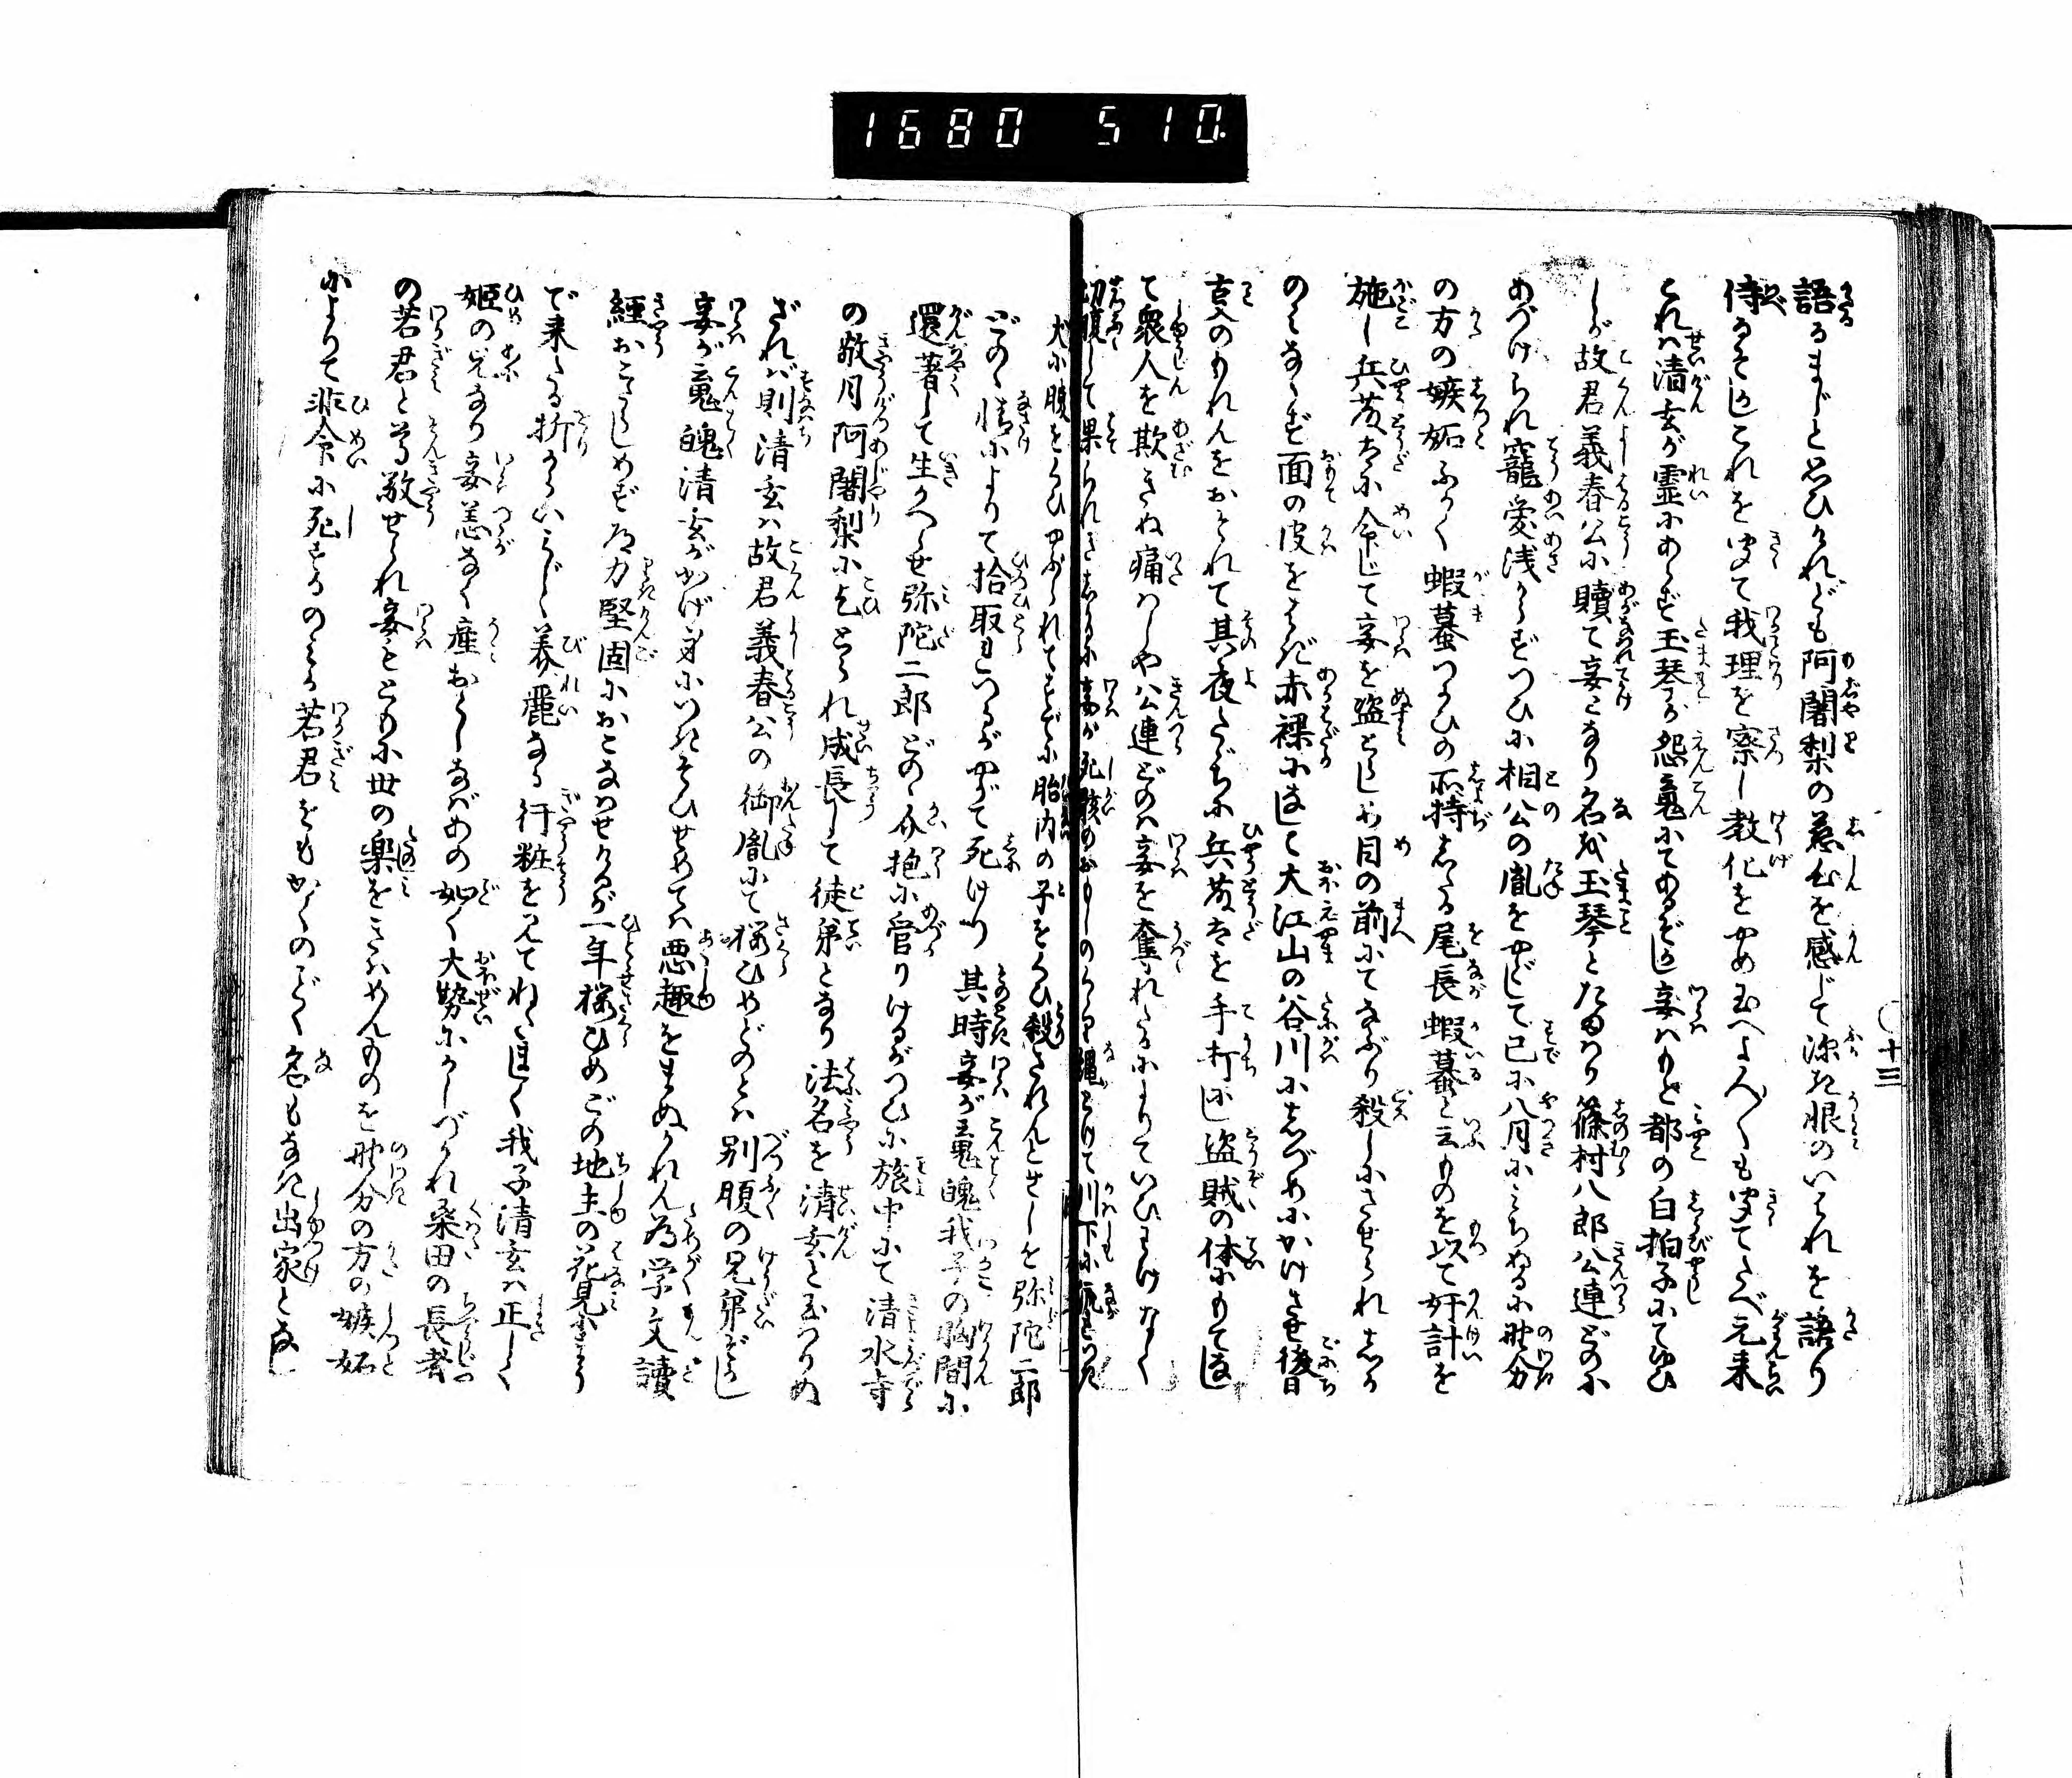 1680 510.
十三
語るまじと思ひけれども阿闍梨の慈心を感じて深き恨のいはれを語り
侍るぞ〳〵これを聞て我理を察し教化をやめ玉へよく〳〵も聞てたべ元来
これハ清玄が霊にあらず玉琴が怨魂にてあるぞ〳〵妾ハもと都の白拍子にてありひ
しが故君義春公に贖て妾となり名を玉琴とたまはり篠村八郎公連どのに
あづけられ寵愛浅からずつひに相公の胤をやどして已に八月にみちぬるに野分
の方の嫉妬ふかく蝦蟇つかひの不持したる尾長蝦蟇と云ものを以て奸計を
施し兵藤太に命じて妾を盗とらし於目の前にてなぶり殺しにさせられあまつ
のミならず面の皮をはぎ赤裸になして大江山の谷川にしづめにかけさせ後日
言人のもれんをおそれて其夜たゞちに兵藤太を手打にし盗賊の体にもてなし
て衆人を欺きぬ痛ハしや公連どのハ妾を奪れたるによりていひわけなく
切腹して果られき其後妾が死骸のおもしのくゝり縄とけて川下に流れつき
犬に腹をくひやぶられてすでに胎内の子をくひ殺されんとせしを弥陀二郎
どのゝ情によりて拾取玉ひつるがやがて死けり其時妾が魂魄我子の胸間に
還着して生かへらせ弥陀二郎どのゝ介抱に管りけるがつひに旅中にて清水寺
の敬月阿闍梨に乞とられ成長して徒弟となり法名を清玄と玉つりぬ
ざれバ則清玄ハ故君義春公の御胤にて桜ひめどのとハ別腹の兄弟ぞかし
妾が魂魄清玄がかげ身につきそひせめてハ悪趣をまぬかれん為学文読
経おこたらしめず道力堅固におこなはせけるが一年桜ひめごの地主の花見にまう
で来たる折からいみじく美麗なる行粧を見てねたましく我子清玄ハ正しく
姫の兄なり妾恙なく産おとしなバあの如く大勢にかしづかれ桑田の長者
の若君と尊敬せられ妾もともに世の楽をきはめんものを野分の方の嫉妬
によりて非命に死するのみか若君をもかくのごとく名もなき出家となし